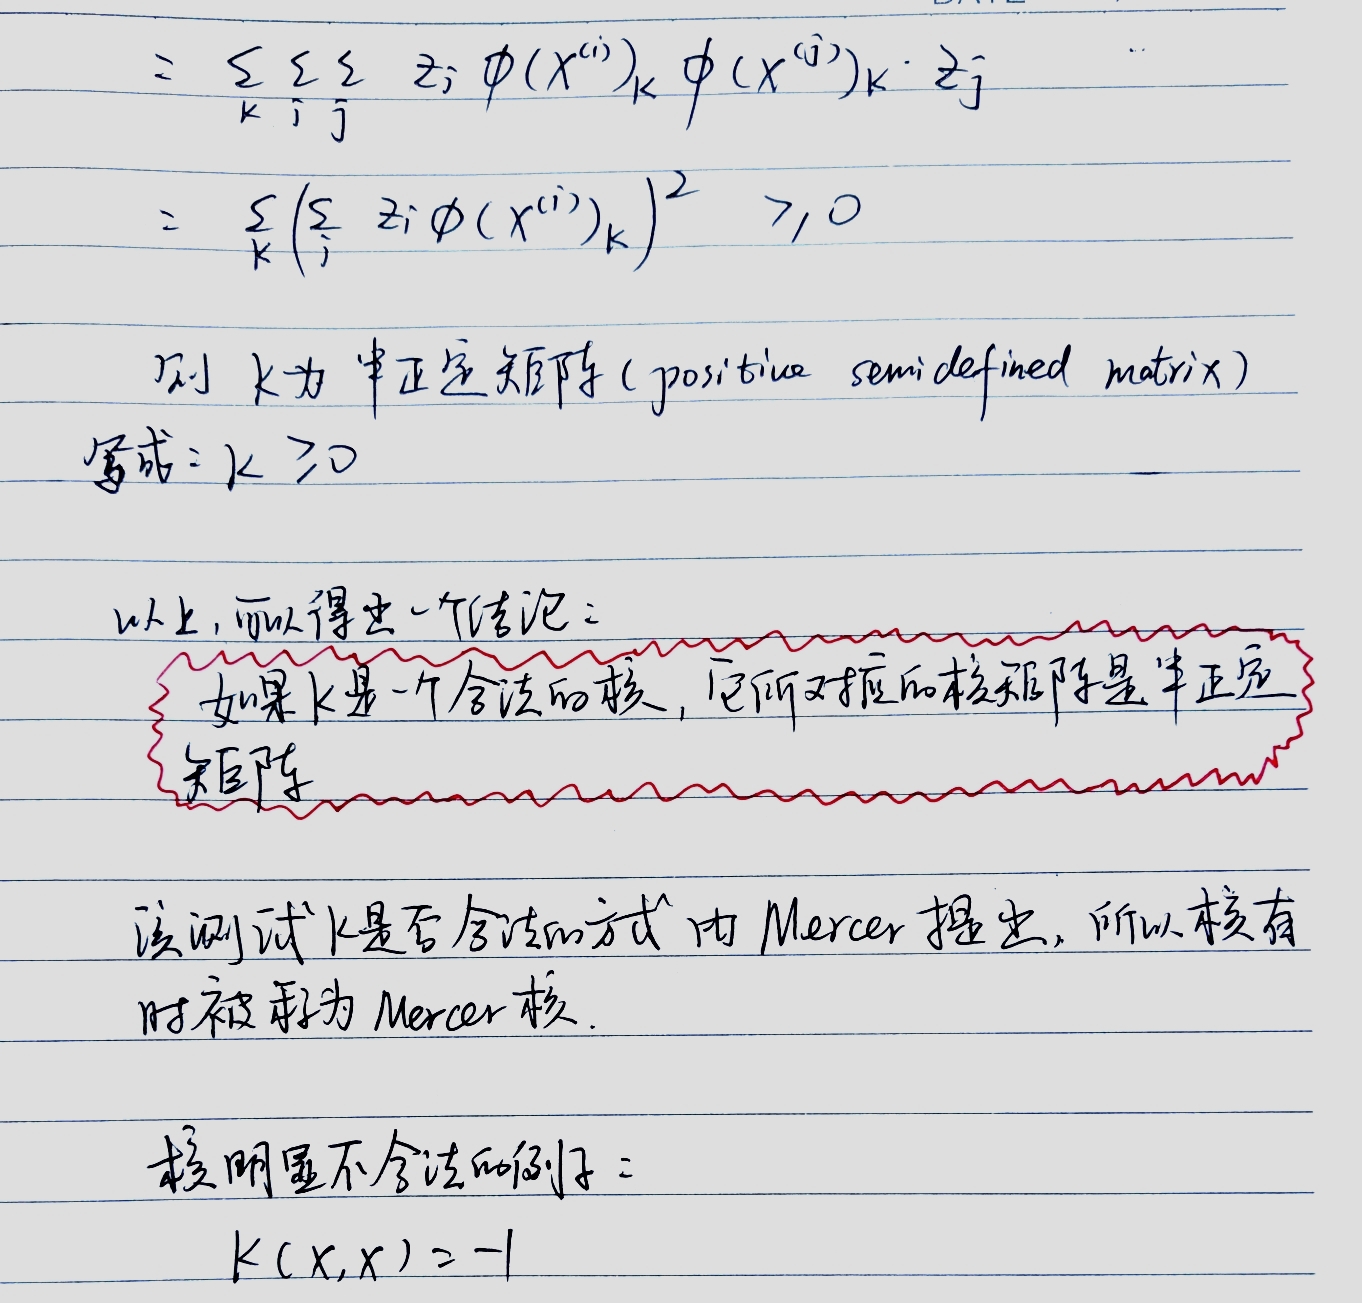 = Σ_k Σ_i Σ_j z_i φ(x^(i))_k φ(x^(j))_k · z_j
= Σ_k (Σ_i z_i φ(x^(i))_k)^2 ≥ 0
则 K为半正定矩阵(positive semidefined matrix)
写成: K ≥ 0
以上,可以得出一个结论:
如果K是一个合法的核, 它所对应的核矩阵是半正定
矩阵
该测试K是否合法的方式由Mercer提出, 所以核有
时被称为Mercer核.
核明显不合法的例子:
K(x,x) = -1